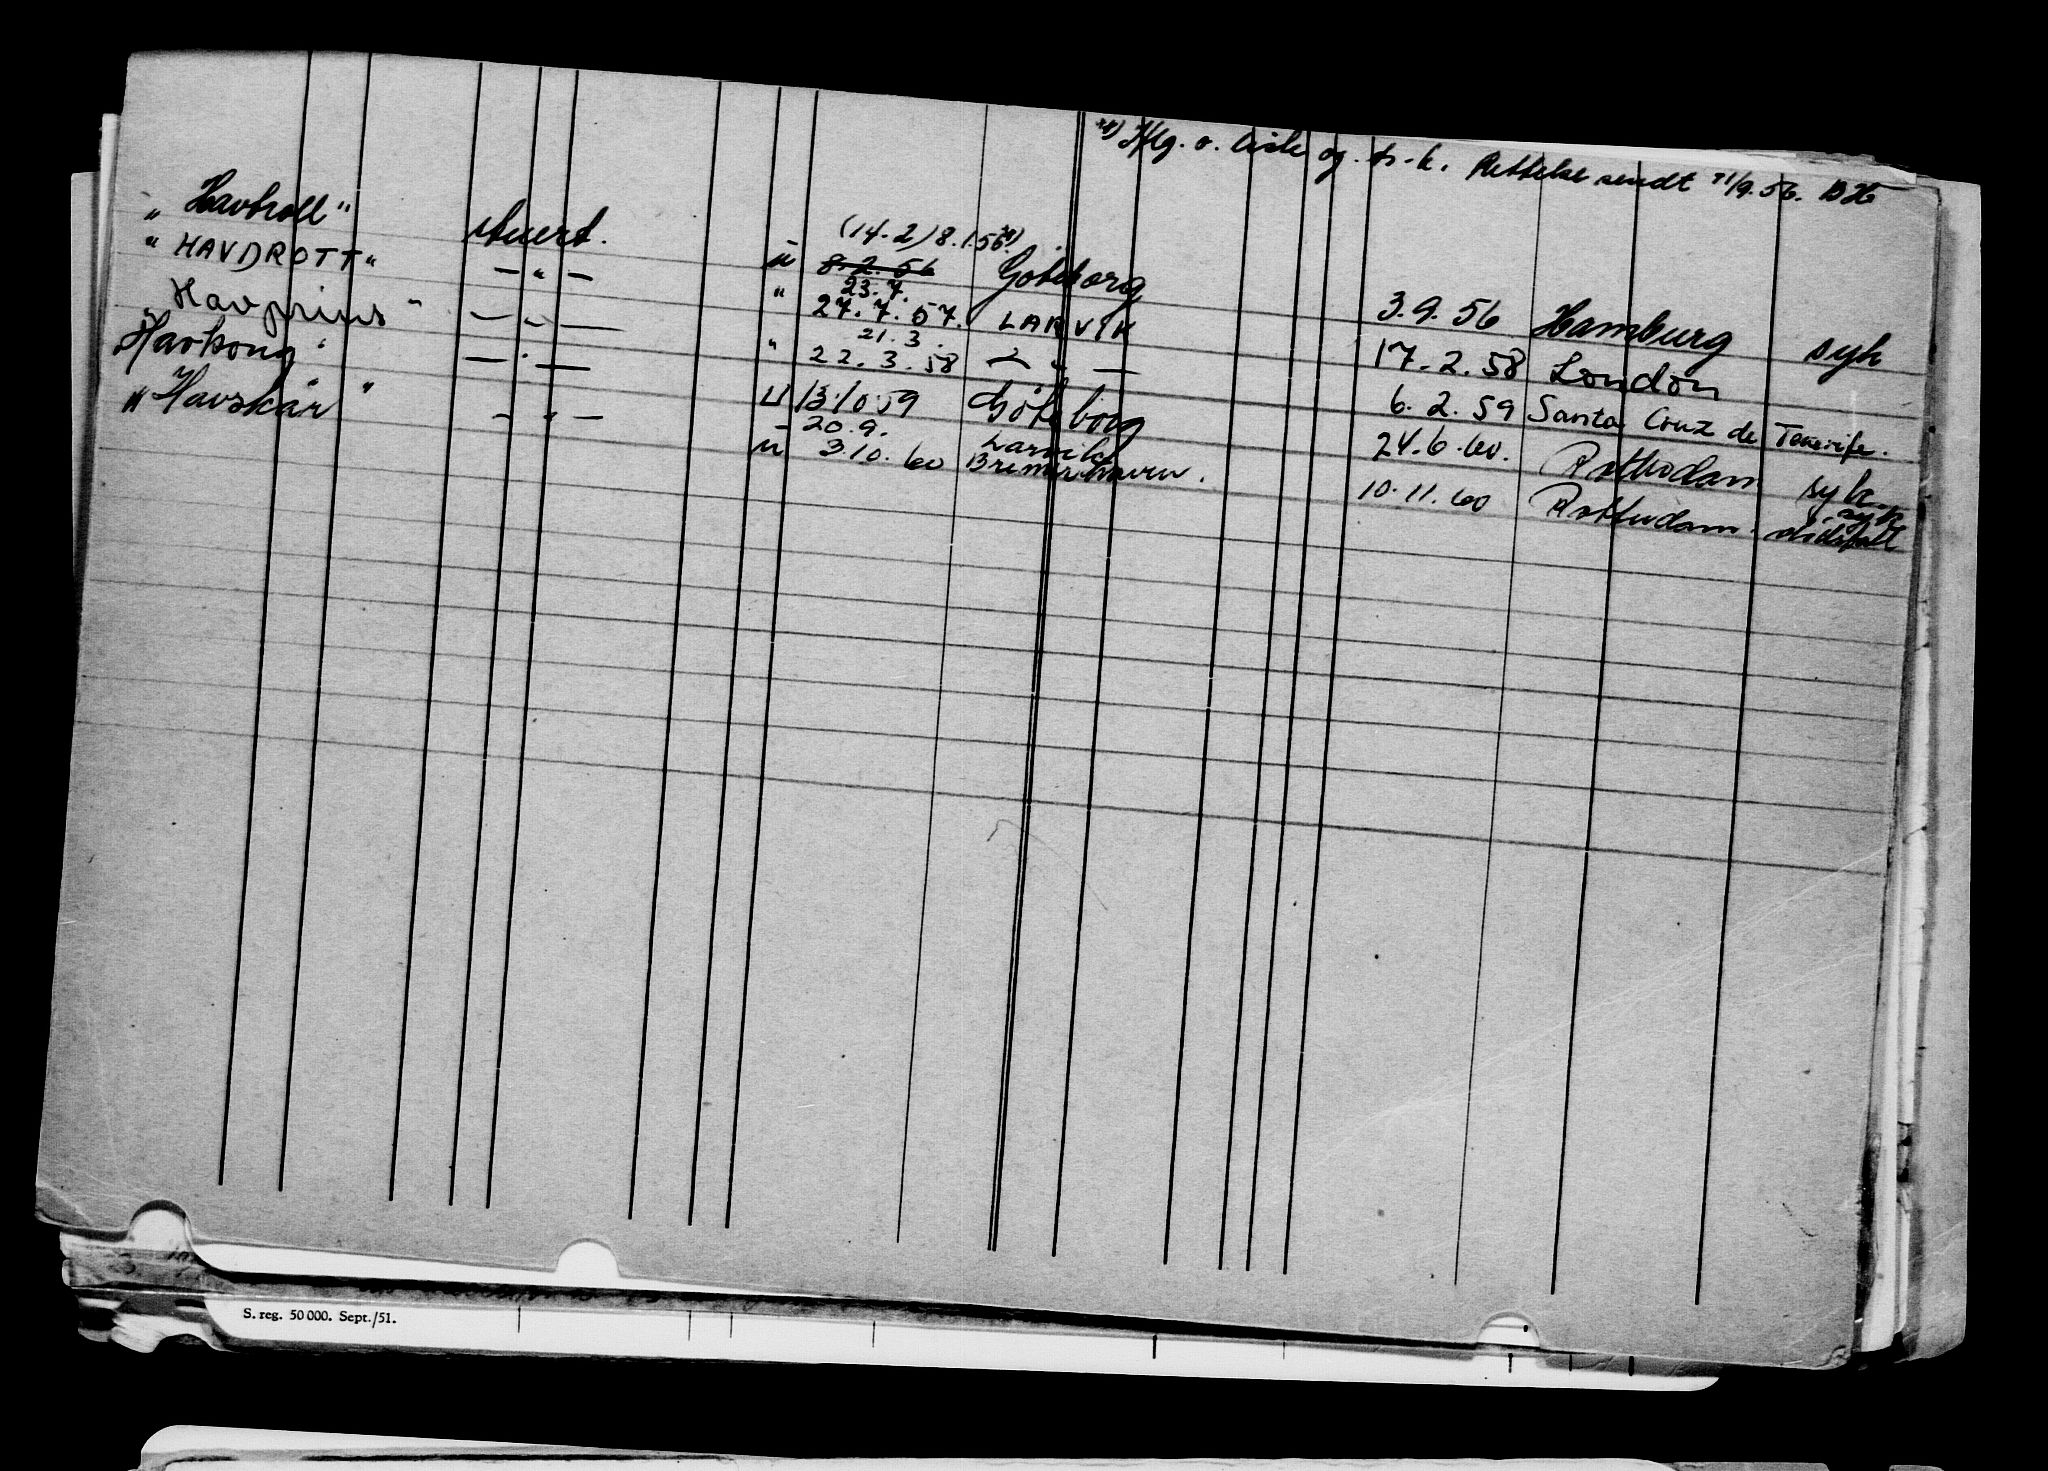 *) Iflg. o. liste og h.k. Rettelse sendt 21/9.56. BH
"Havtroll" stuert. u (14.2) 8.1.56*) Göteborg 3.9.56 Hamburg syk
8.2.56
23.7.
"HAVDROTT" — " — " 27.7.57. LARVIK 17.2.58 London
21.3.
Havprins" — " — " 22.3.58 — " — 6.2.59 Santa Cruz de Tenerife.
"Havkong" — " — u 13.10 59 Göteborg 24.6.60. Rotterdam syk
20.9. Larvik syk
"Havskår" — " — u 3.10.60 Bremerhaven. 10.11.60 Rotterdam.
S. reg. 50 000. Sept./51.